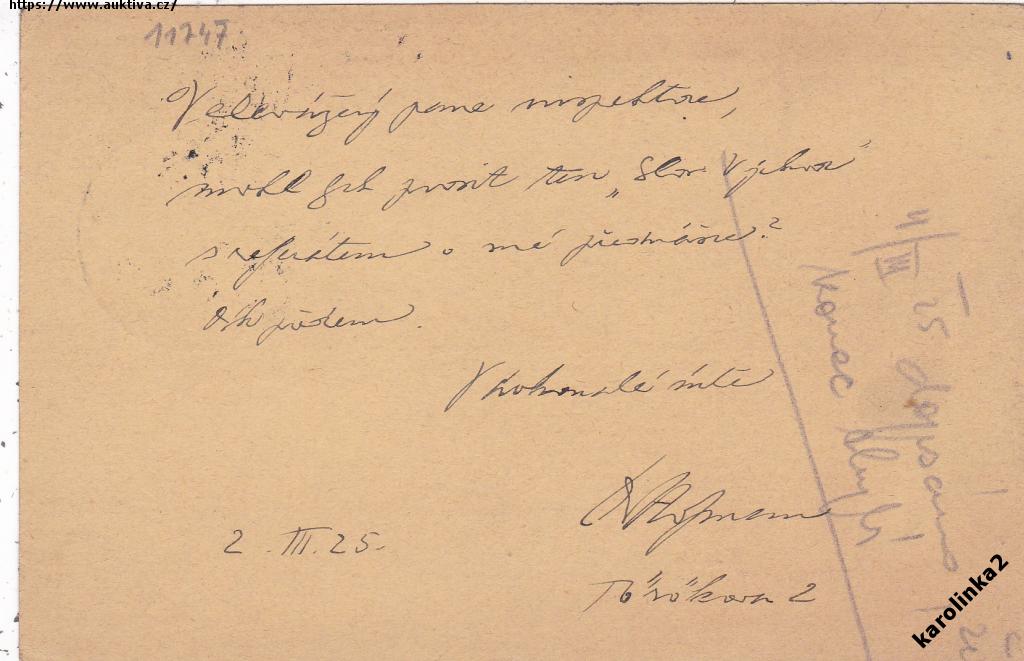 https://www.auktiva.cz/
11747
Velevážený pane inspektore,
mohl bych prosit ten „Slov.
s referátem o mé přednášce?
předem.
V dokonalé úctě
2. III. 25.
Törökova 2
4/III 25 dopsáno
konec
karolinka2